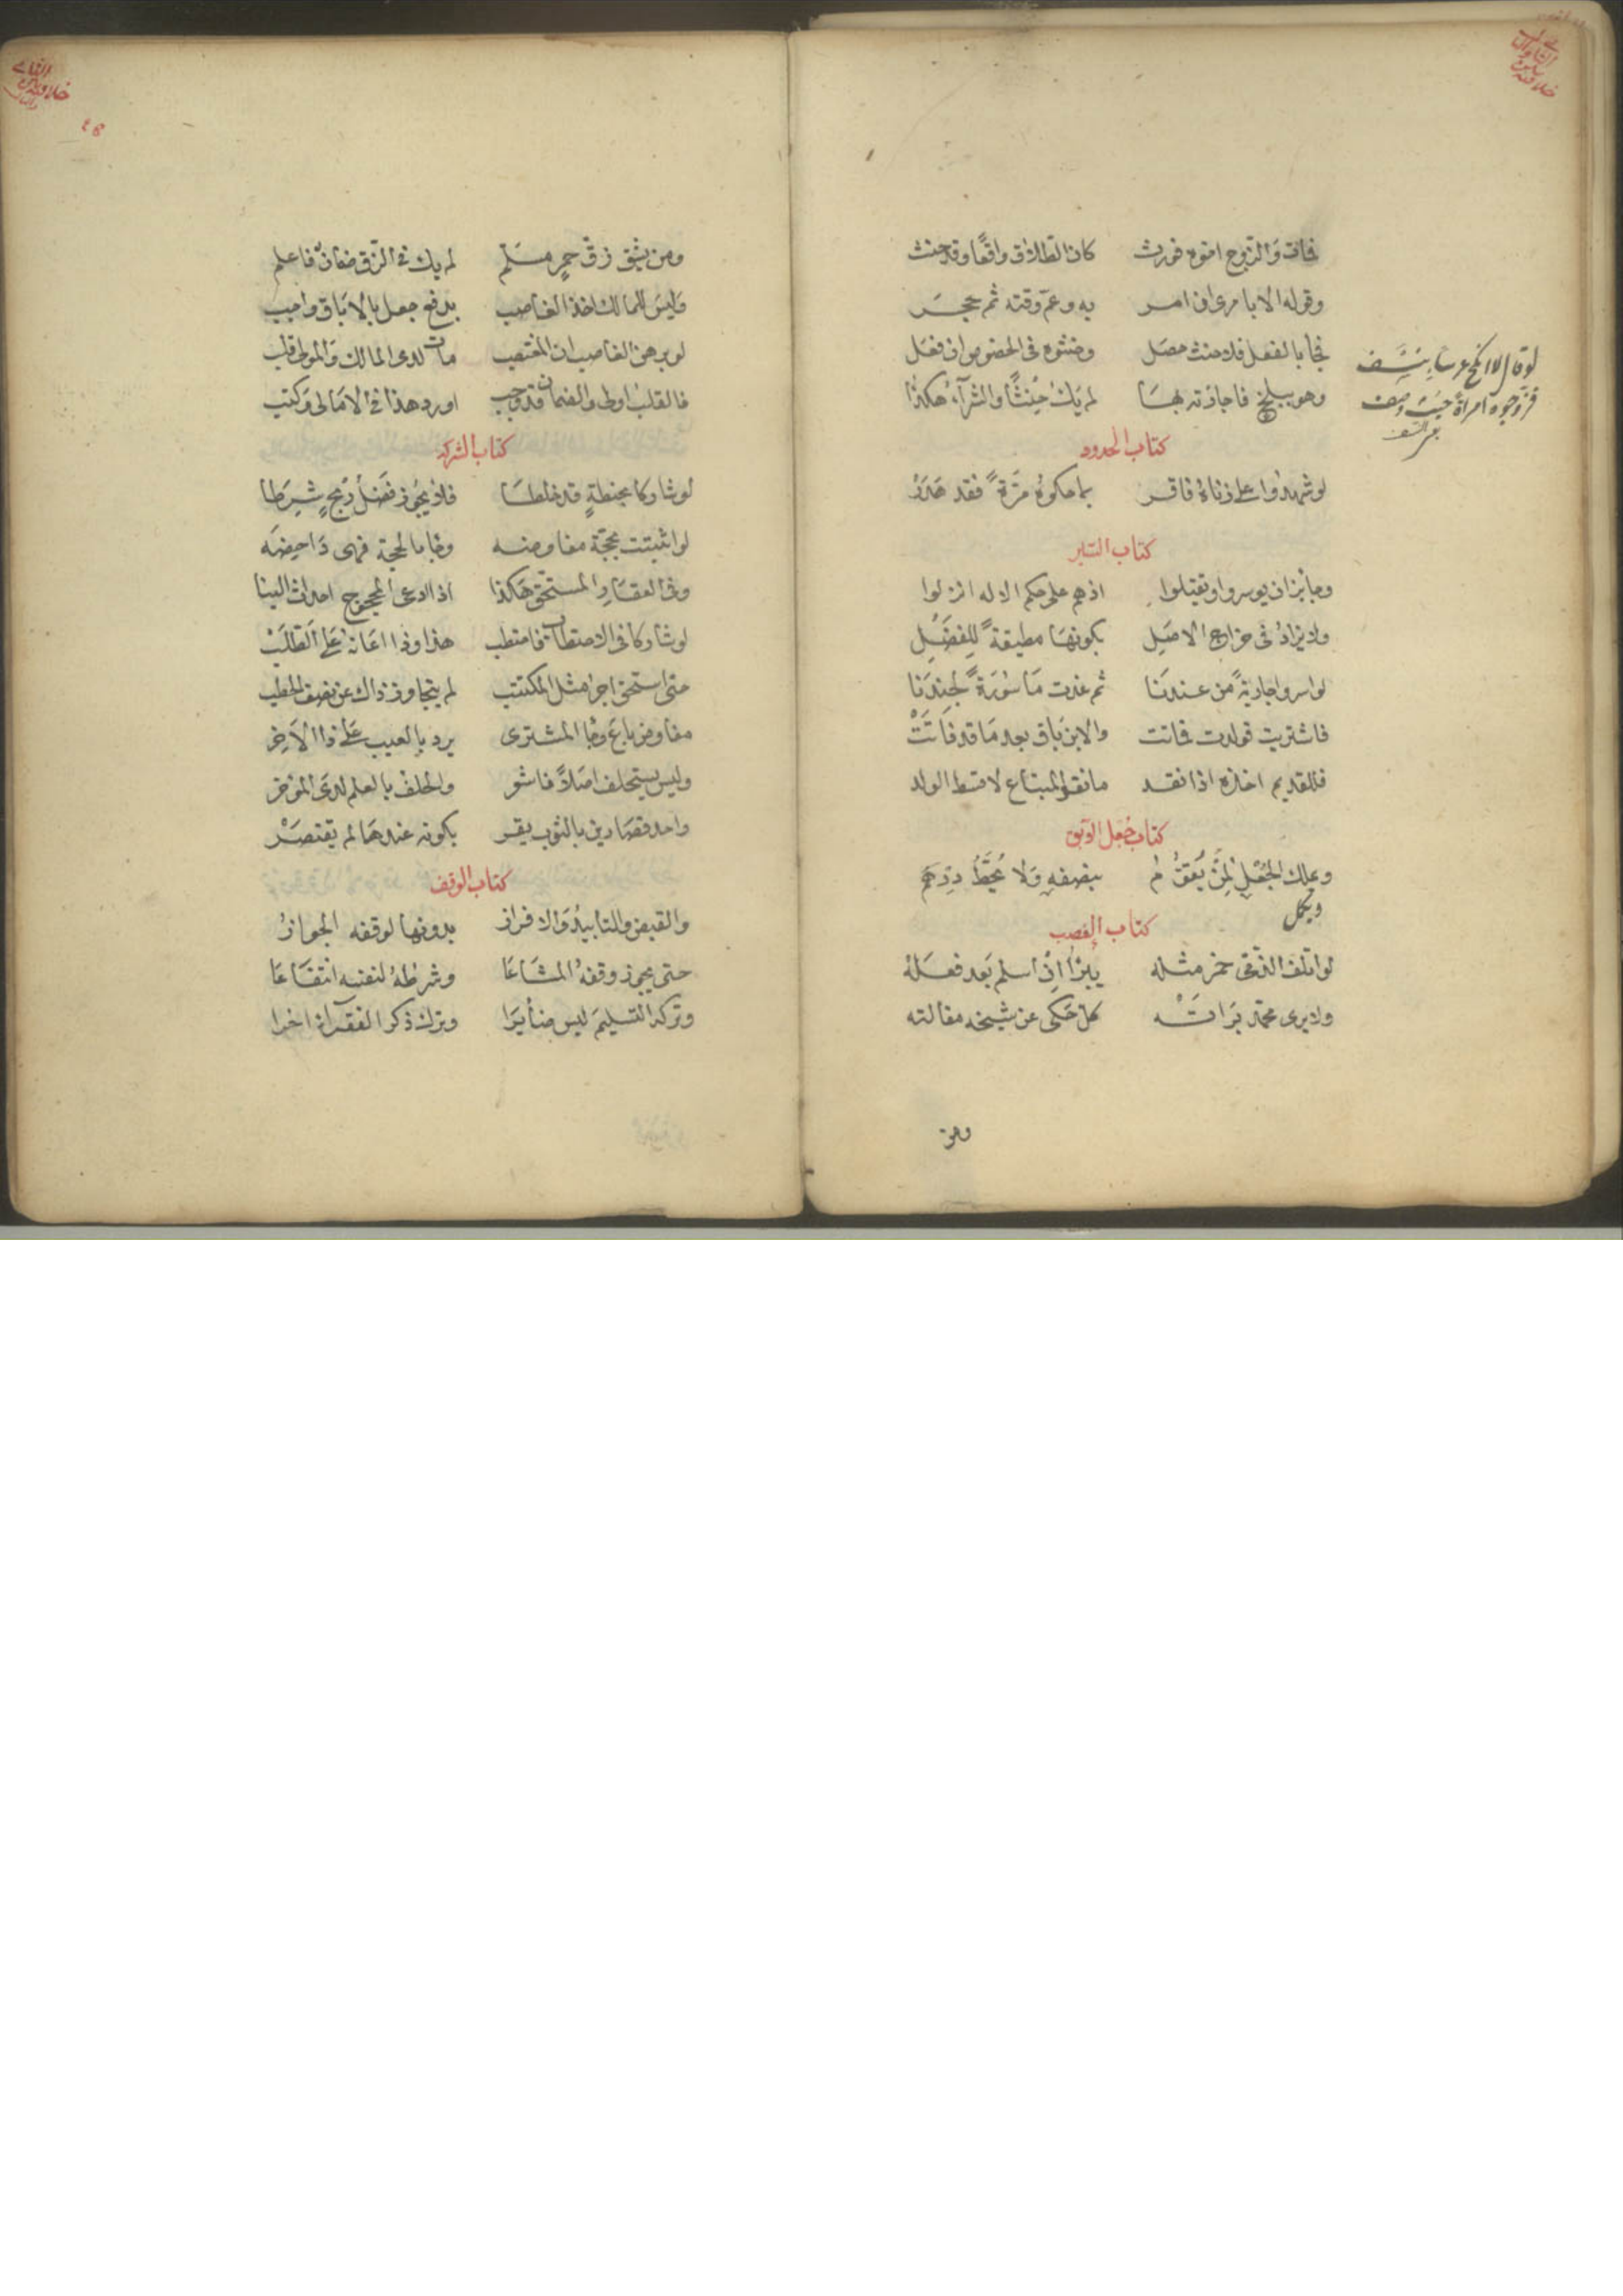 كان الطلاق واقعًا وقد حنث
وقوله الا بامرى ان امر به وعم وقته ثم حجر
فجا بالفعل فلا حنث حصل وحنثوه فى الخصوص ان فعل
وهو ببلخ فاجازته بها لم يك حِنثًا والشرآء هكذا
لو قال لا انكح عرسا بنسف
فزوجوه امراة حيث وصف
كتاب الحدود
لو شهدوا على زناهُ فاقر بما حكوهُ مَرّةً فقد هَدَرْ
كتاب السير
وجائز ان يوسروا او يقتلوا اذ هم على حكم الاله انزلوا
ولا يزادُ فى خراج الاصَل بكونهَا مطيقةً للفَضَل
لو اسروا جاريةً من عندنَا ثم غدت مَاسُورَةً لجندنَا
فاشتريت فولدت فماتت والابن بَاق بعد مَا قد فَاتَتْ
فللقديم اخذه اذا نقد ما نقد المبتاع لا قسط الولد
كتاب جُعل الآبق
بنصفهِ وَلا يُحَطُّ دِرهَم
ويكمل
كتاب الغصب
لو اتلف الذمى خمر مثله يبرأ ان اسلم بَعد فعسَله
ولا يرى محمد بَرَاته كل حَكى عن شيخه مقالته
ومن
ومن يشق زق خمرٍ مسَلم لم يك فى الزق ضمانٌ فاعلم
وَليسَ للمالك اخذ الغاصب بدفع جعل بالابَاق واجب
لو برهن الغاصب ان المغتصب مات لدى المالك وَالمولى قلب
فالقلب اولى والضمان قد وجب اورد هذا فى الامَالى وَكتب
كتاب الشركه
لو شاركا بحنطةٍ قد خلطَا فلا يجُوز فضلُ رَبحٍ شُرِطا
لو اثبتت بحجّة مفاوضه وجا بالحجة فهى دَاحضَه
وفى العقَارِ المستحق هَكذا اذا ادعى المحجوج احداث البنا
لو شاركا فى الاحتطاب فاحتطب هذا وذا اعَانهُ عَلى الطلَبْ
حتى استحق اجر مثل المكتسب لم يتجاوز ذاك عن نصف الحطب
مفاوض بَاعَ وجَا المشترى يرد بالعيب عَلى ذا الاخِر
وليس يستحلف اصَلاً والحلف بالعلم لدى المؤخر
واحد قصَارين بالثوب يقر بكونه عندهَا لم يقتصَرْ
كتاب الوقف
والقبض والتابيدُ وَالافراز بدونها لوقفه الجوازُ
حتى يجوز وقفهُ المشَاعَا وشرطهُ لنفسه انتفَاعَا
وتركه التسليمَ ليس ضَائرَا وترك ذكر الفقرآء اخرا